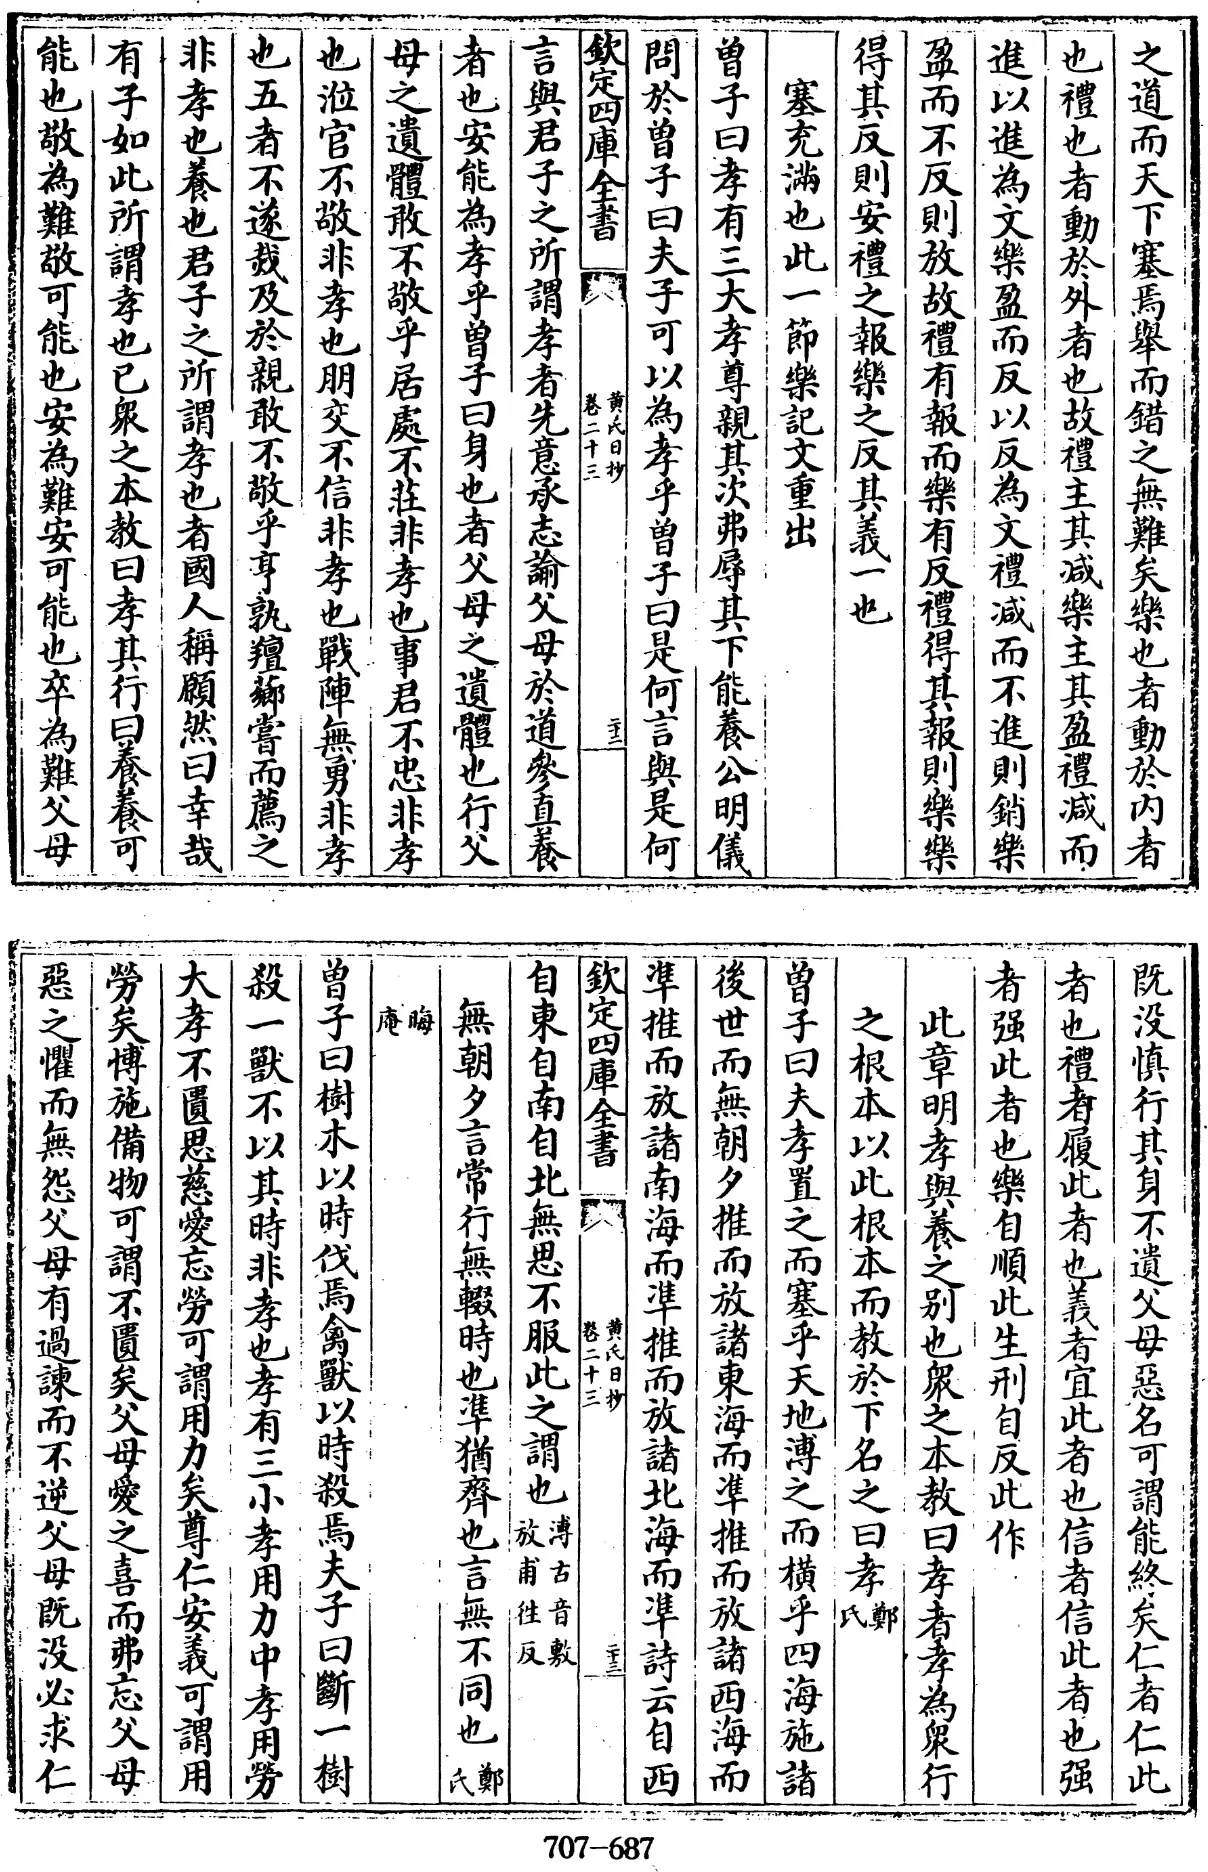 之道而天下塞焉舉而錯之無難矣樂也者動於内者
也禮也者動於外者也故禮主其减樂主其盈禮减而
進以進為文樂盈而反以反為文禮减而不進則銷樂
盈而不反則放故禮有報而樂有反禮得其報則樂樂
得其反則安禮之報樂之反其義一也
塞充滿也此一節樂記文重出
曽子曰孝有三大孝尊親其次弗辱其下能養公明儀
問於曽子曰夫子可以為孝乎曽子曰是何言與是何
欽定四庫全書
黄氏日抄
卷二十三
二十二
言與君子之所謂孝者先意承志諭父母於道參直養
者也安能為孝乎曽子曰身也者父母之遺體也行父
母之遺體敢不敬乎居處不莊非孝也事君不忠非孝
也涖官不敬非孝也朋交不信非孝也戰陣無勇非孝
也五者不遂烖及於親敢不敬乎亨孰羶薌嘗而薦之
非孝也養也君子之所謂孝也者國人稱願然曰幸哉
有子如此所謂孝也已衆之本教曰孝其行曰養養可
能也敬為難敬可能也安為難安可能也卒為難父母
既没慎行其身不遺父母惡名可謂能終矣仁者仁此
者也禮者履此者也義者宜此者也信者信此者也强
者强此者也樂自順此生刑自反此作
此章明孝與養之别也衆之本教曰孝者孝為衆行
之根本以此根本而教於下名之曰孝鄭氏
曽子曰夫孝置之而塞乎天地溥之而横乎四海施諸
後世而無朝夕推而放諸東海而凖推而放諸西海而
凖推而放諸南海而凖推而放諸北海而凖詩云自西
欽定四庫全書
黄氏日抄
卷二十三
二十三
自東自南自北無思不服此之謂也溥古音敷放甫往反
無朝夕言常行無輟時也凖猶齊也言無不同也鄭氏
晦庵
曽子曰樹木以時伐焉禽獸以時殺焉夫子曰斷一樹
殺一獸不以其時非孝也孝有三小孝用力中孝用勞
大孝不匱思慈愛忘勞可謂用力矣尊仁安義可謂用
勞矣博施備物可謂不匱矣父母愛之喜而弗忘父母
惡之懼而無怨父母有過諫而不逆父母既没必求仁
707-687